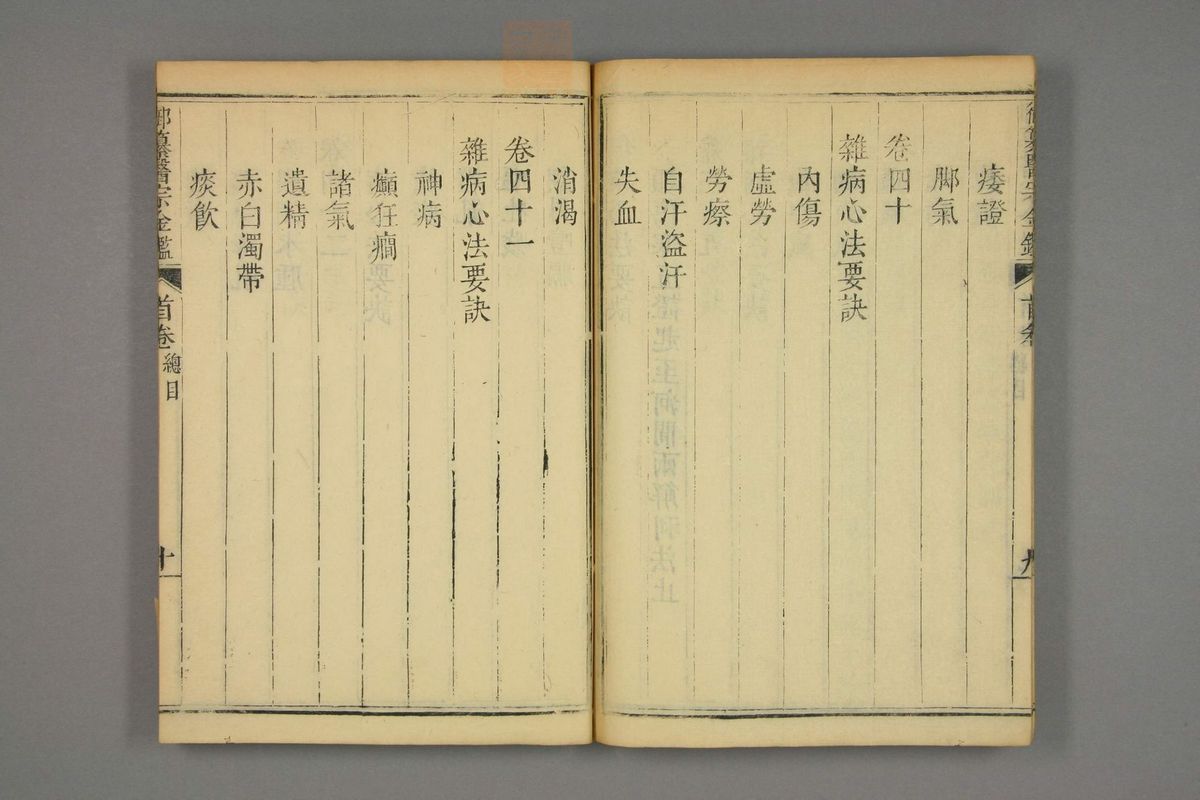 痿證
腳氣
卷四十
雜病心法要訣
內傷
虛勞
勞瘵
自汗盜汗
失血
消渴
卷四十一
雜病心法要訣
神病
癲狂癇
諸氣
遺精
赤白濁帶
痰飲
御纂醫宗金鑑
首卷
總目
十